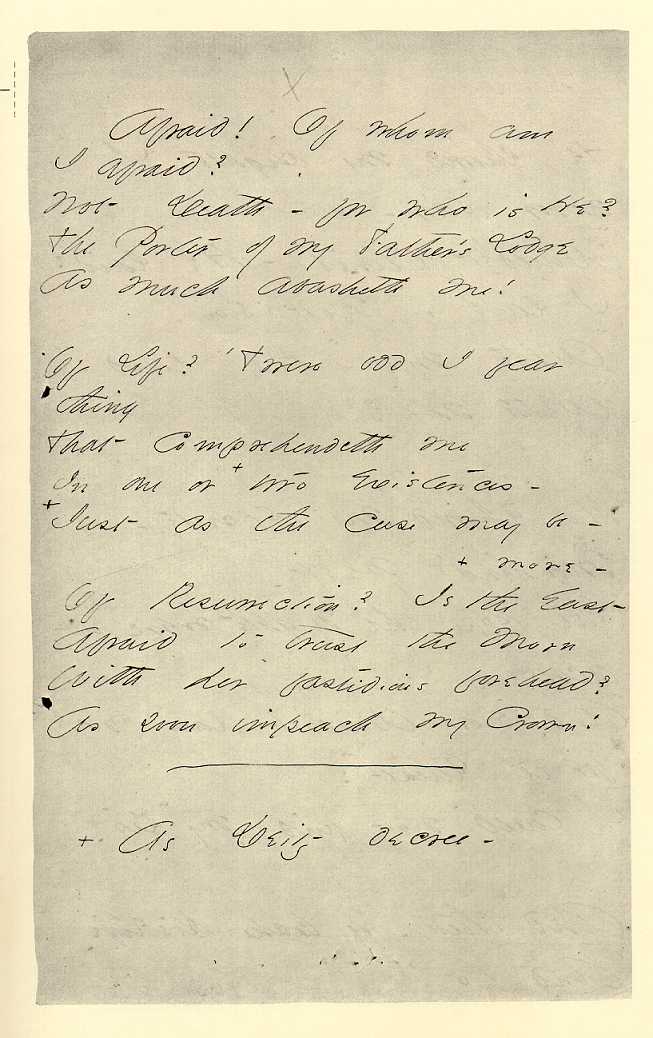 x
Afraid! Of whom am
I afraid?
Not Death – for who is He?
The Porter of my Father's Lodge
As much abasheth me!
Of Life? 'Twere odd I fear
thing
That comprehendeth me
In one or + two Existences –
+ Just as the case may be –
+ more –
Of Resurrection? Is the East
Afraid to trust the Morn
With her fastidious forehead?
As soon impeach my Crown!
+ As Deity decree –